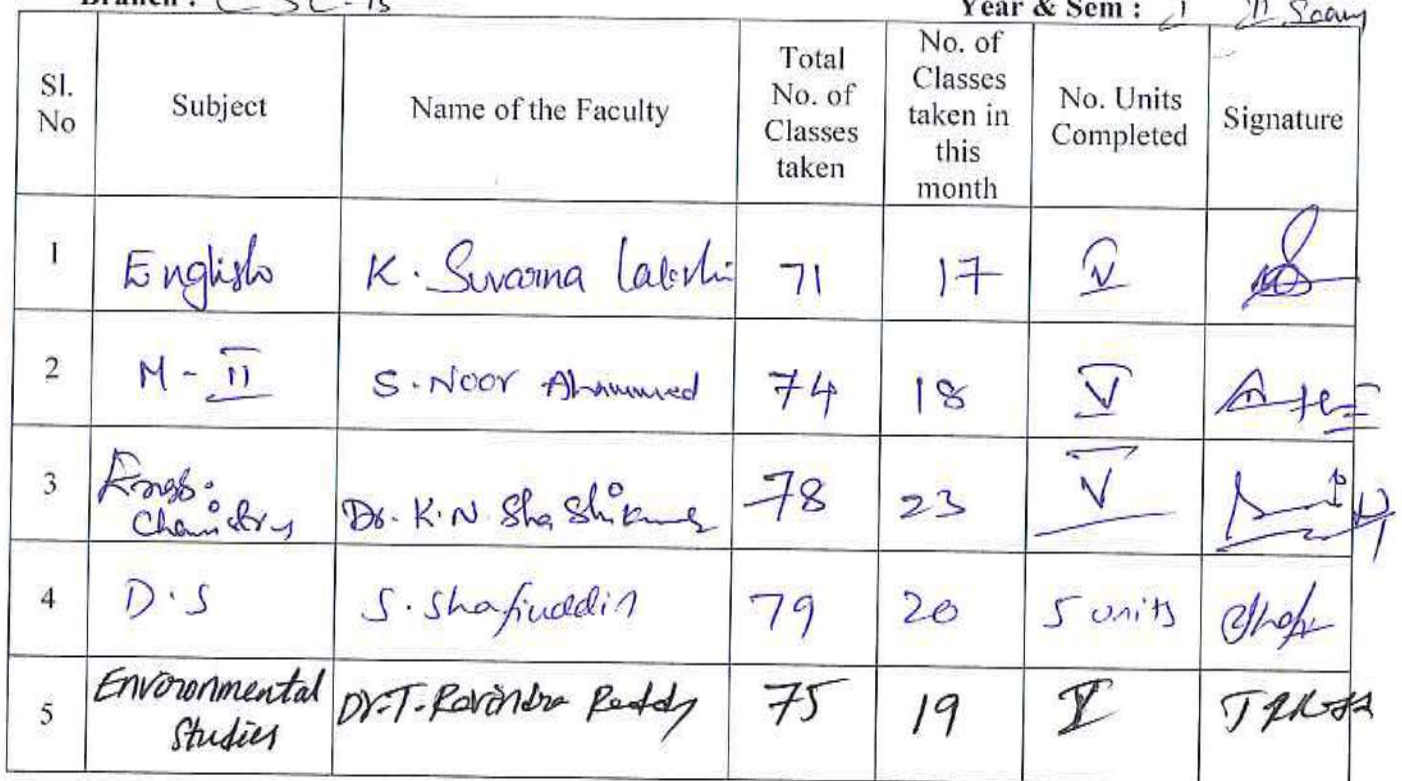 Branch : CSE-B Year & Sem : I II Sem
Sl. No Subject Name of the Faculty Total No. of Classes taken No. of Classes taken in this month No. Units Completed Signature
1 English K. Suvarna Lakshmi 71 17 V
2 M-II S. Noor Ahammed 74 18 V
3 Engg. Chemistry Dr. K.N. Shashikumar 78 23 V
4 D.S S. Shafiuddin 79 20 5 units
5 Environmental Studies Dr. T. Ravindra Reddy 75 19 V